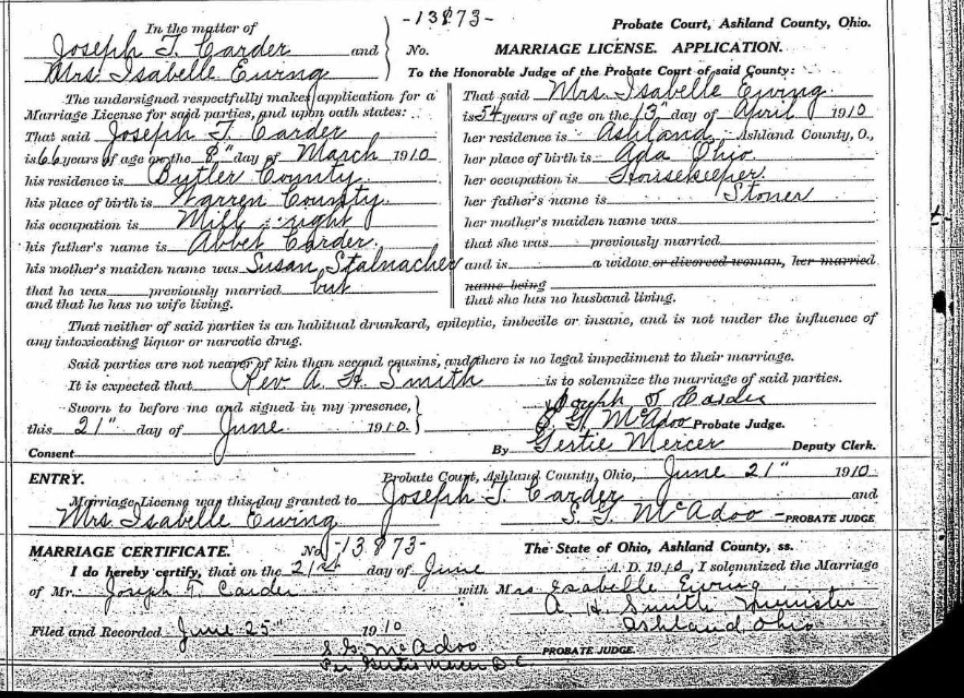 -13873-
Probate Court, Ashland County, Ohio.
In the matter of
Joseph T. Carder and
Mrs. Isabelle Ewing
No.
MARRIAGE LICENSE. APPLICATION.
To the Honorable Judge of the Probate Court of said County:
The undersigned respectfully makes application for a
Marriage License for said parties, and upon oath states:
That said Joseph T. Carder
is 66 years of age on the 8" day of March 1910
his residence is Butler County.
his place of birth is Warren County.
his occupation is Mill-right
his father's name is Abbet Carder.
his mother's maiden name was Susan Stalnacher
that he was previously married but
and that he has no wife living.
That said Mrs. Isabelle Ewing
is 54 years of age on the 13" day of April 1910
her residence is Ashland, Ashland County, O.,
her place of birth is Ada Ohio
her occupation is Housekeeper.
her father's name is Stoner
her mother's maiden name was
that she was previously married
and is a widow or divorced woman, her married
name being
that she has no husband living.
That neither of said parties is an habitual drunkard, epileptic, imbecile or insane, and is not under the influence of
any intoxicating liquor or narcotic drug.
Said parties are not nearer of kin than second cousins, and there is no legal impediment to their marriage.
It is expected that Rev. A. H. Smith is to solemnize the marriage of said parties.
Sworn to before me and signed in my presence,
this 21" day of June 1910.
Joseph T Carder
S. G. McAdoo Probate Judge.
Consent
By Gertie Mercer Deputy Clerk.
ENTRY.
Probate Court, Ashland County, Ohio, June 21" 1910
Marriage License was this day granted to Joseph T. Carder and
Mrs. Isabelle Ewing
S. G. McAdoo - PROBATE JUDGE
MARRIAGE CERTIFICATE.
No. -13873-
The State of Ohio, Ashland County, ss.
I do hereby certify, that on the 21st day of June A. D. 1910, I solemnized the Marriage
of Mr. Joseph T. Carder with Mrs Isabelle Ewing
A. H. Smith Minister
Ashland Ohio
Filed and Recorded June 25" 1910
S. G. McAdoo PROBATE JUDGE.
Per Gertie Mercer D. C.